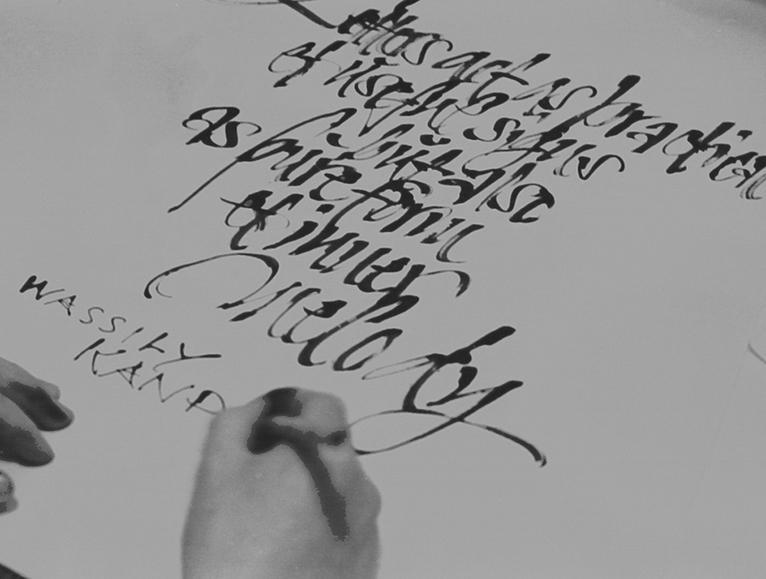 act as practical
of useful signs
but also
as pure form
of inner
melody
WASSILY
KAND